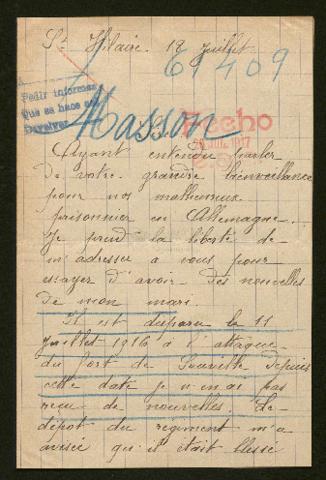 St Hilaire. 18 Juillet
61409
Pedir informes
que se hace el
Devolver
Masson
Fecho
JUIL 1917
Ayant entendu parler
de votre grandre bienveillance
pour nos malheureux
prisonnier en Allemagne.
Je prend la liberté de
m'adresser a vous pour
essayer d'avoir des nouvelles
de mon mari
Il est disparu le 11
Juillet 1916 à l'attaque
du fort de Souville depuis
cette date je n'en as pas
reçu de nouvelles. Le
dépot du regiment m'a
avisée qu'il était blessé